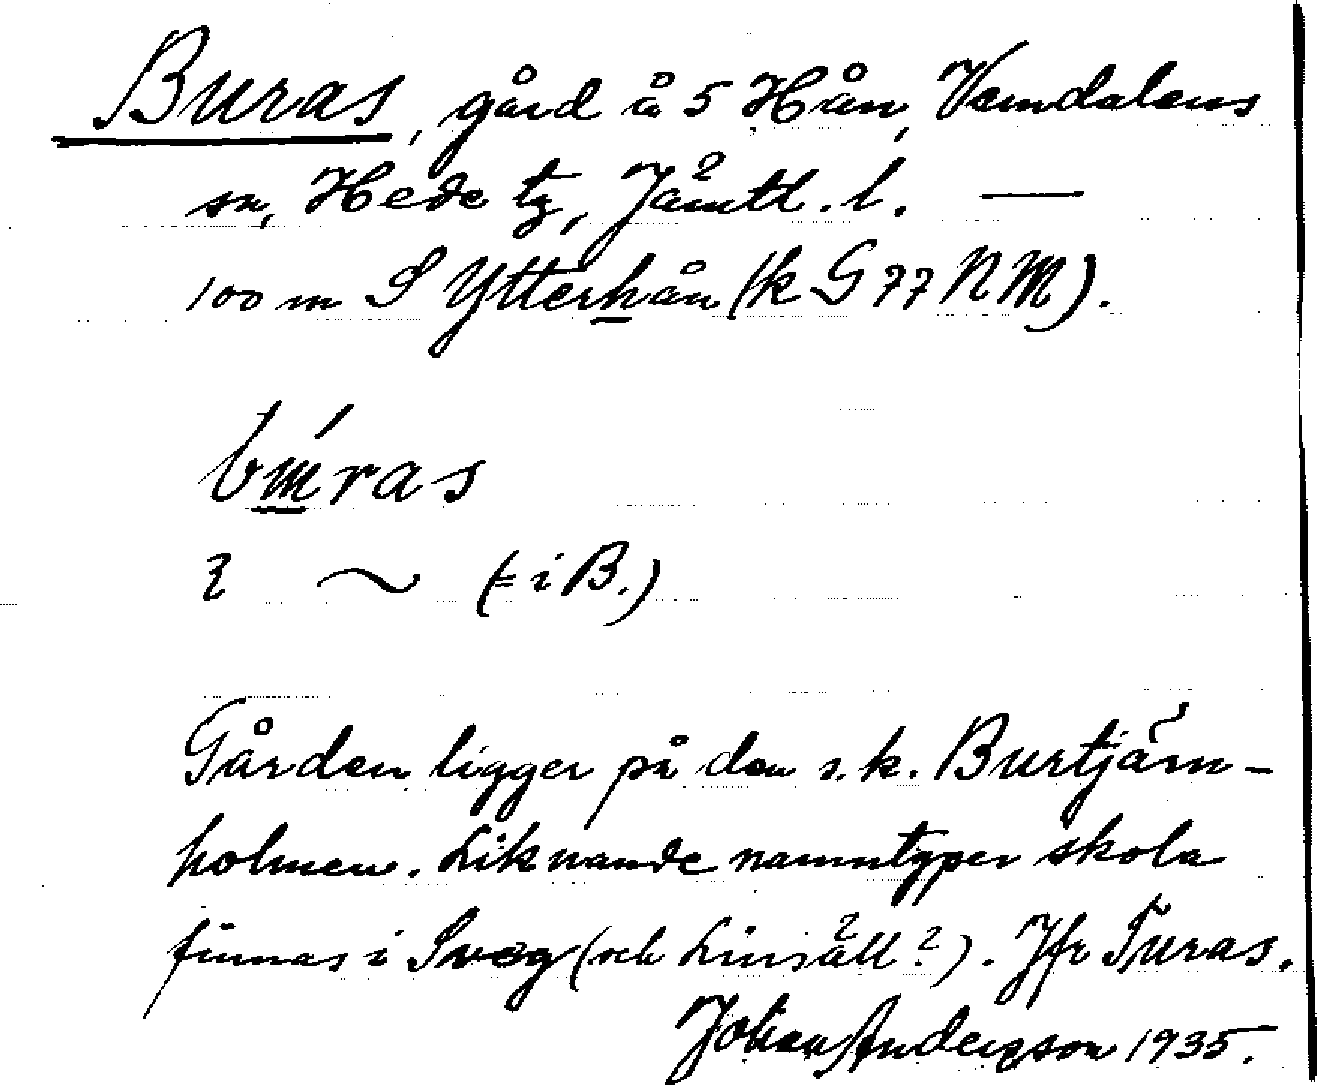 Buras, gård å 5 Hån, Vemdalens
sn, Hede tg, Jämtl. l. —
100 m S Ytterhån (k G 77 NM).
búras
i ~ (= i B.)
Gården ligger på den s.k. Burtjärn-
holmen. Liknande namntyper skola
finnas i Sveg (och Linsäll?). Jfr Turas.
Johan Anderzson 1935.